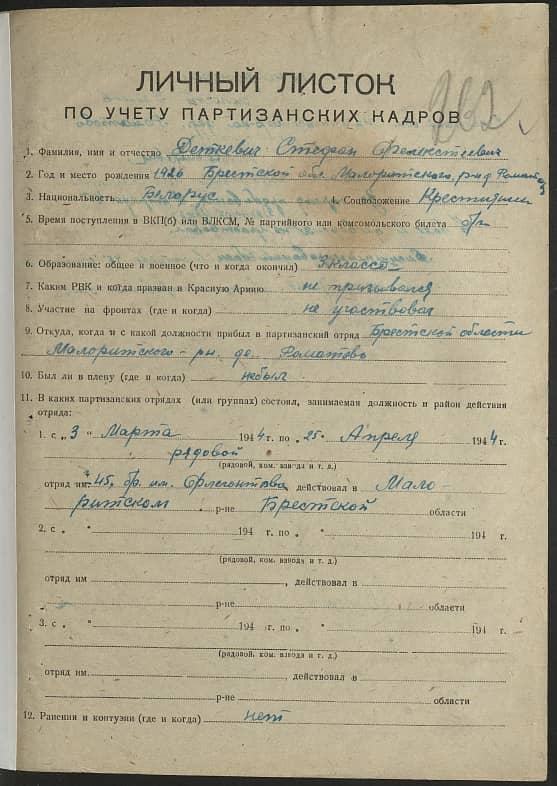 262.
ЛИЧНЫЙ ЛИСТОК
ПО УЧЕТУ ПАРТИЗАНСКИХ КАДРОВ
1. Фамилия, имя и отчество Деткевич Стефан
2. Год и место рождения 1926 Брестской обл. Малоритского р-на д
3. Национальность Белорус 4. Соцположение Крестьянин
5. Время поступления в ВКП(б) или ВЛКСМ, № партийного или комсомольского билета б/п
6. Образование: общее и военное (что и когда окончил) 3 класса
7. Каким РВК и когда призван в Красную Армию не призывался
8. Участие на фронтах (где и когда) не участвовал
9. Откуда, когда и с какой должности прибыл в партизанский отряд Брестской области
Малоритского р-н. де.
10. Был ли в плену (где и когда) небыл
11. В каких партизанских отрядах (или группах) состоял, занимаемая должность и район действия
отряда:
1. с „3“ Марта 1944 г. по „25“ Апреля 1944 г.
рядовой
(рядовой, ком. взвода и т. д.)
отряд им. 45. бр. им. Флегонтова действовал в Мало-
ритском р-не Брестской области
2. с „ “ 194 г. по „ “ 194 г.
(рядовой, ком. взвода и т. д.)
отряд им , действовал в
р-не области
3. с „ “ 194 г. по „ “ 194 г.
(рядовой, ком. взвода и т. д.)
отряд им. , действовал в
р-не области
12. Ранения и контузии (где и когда) нет